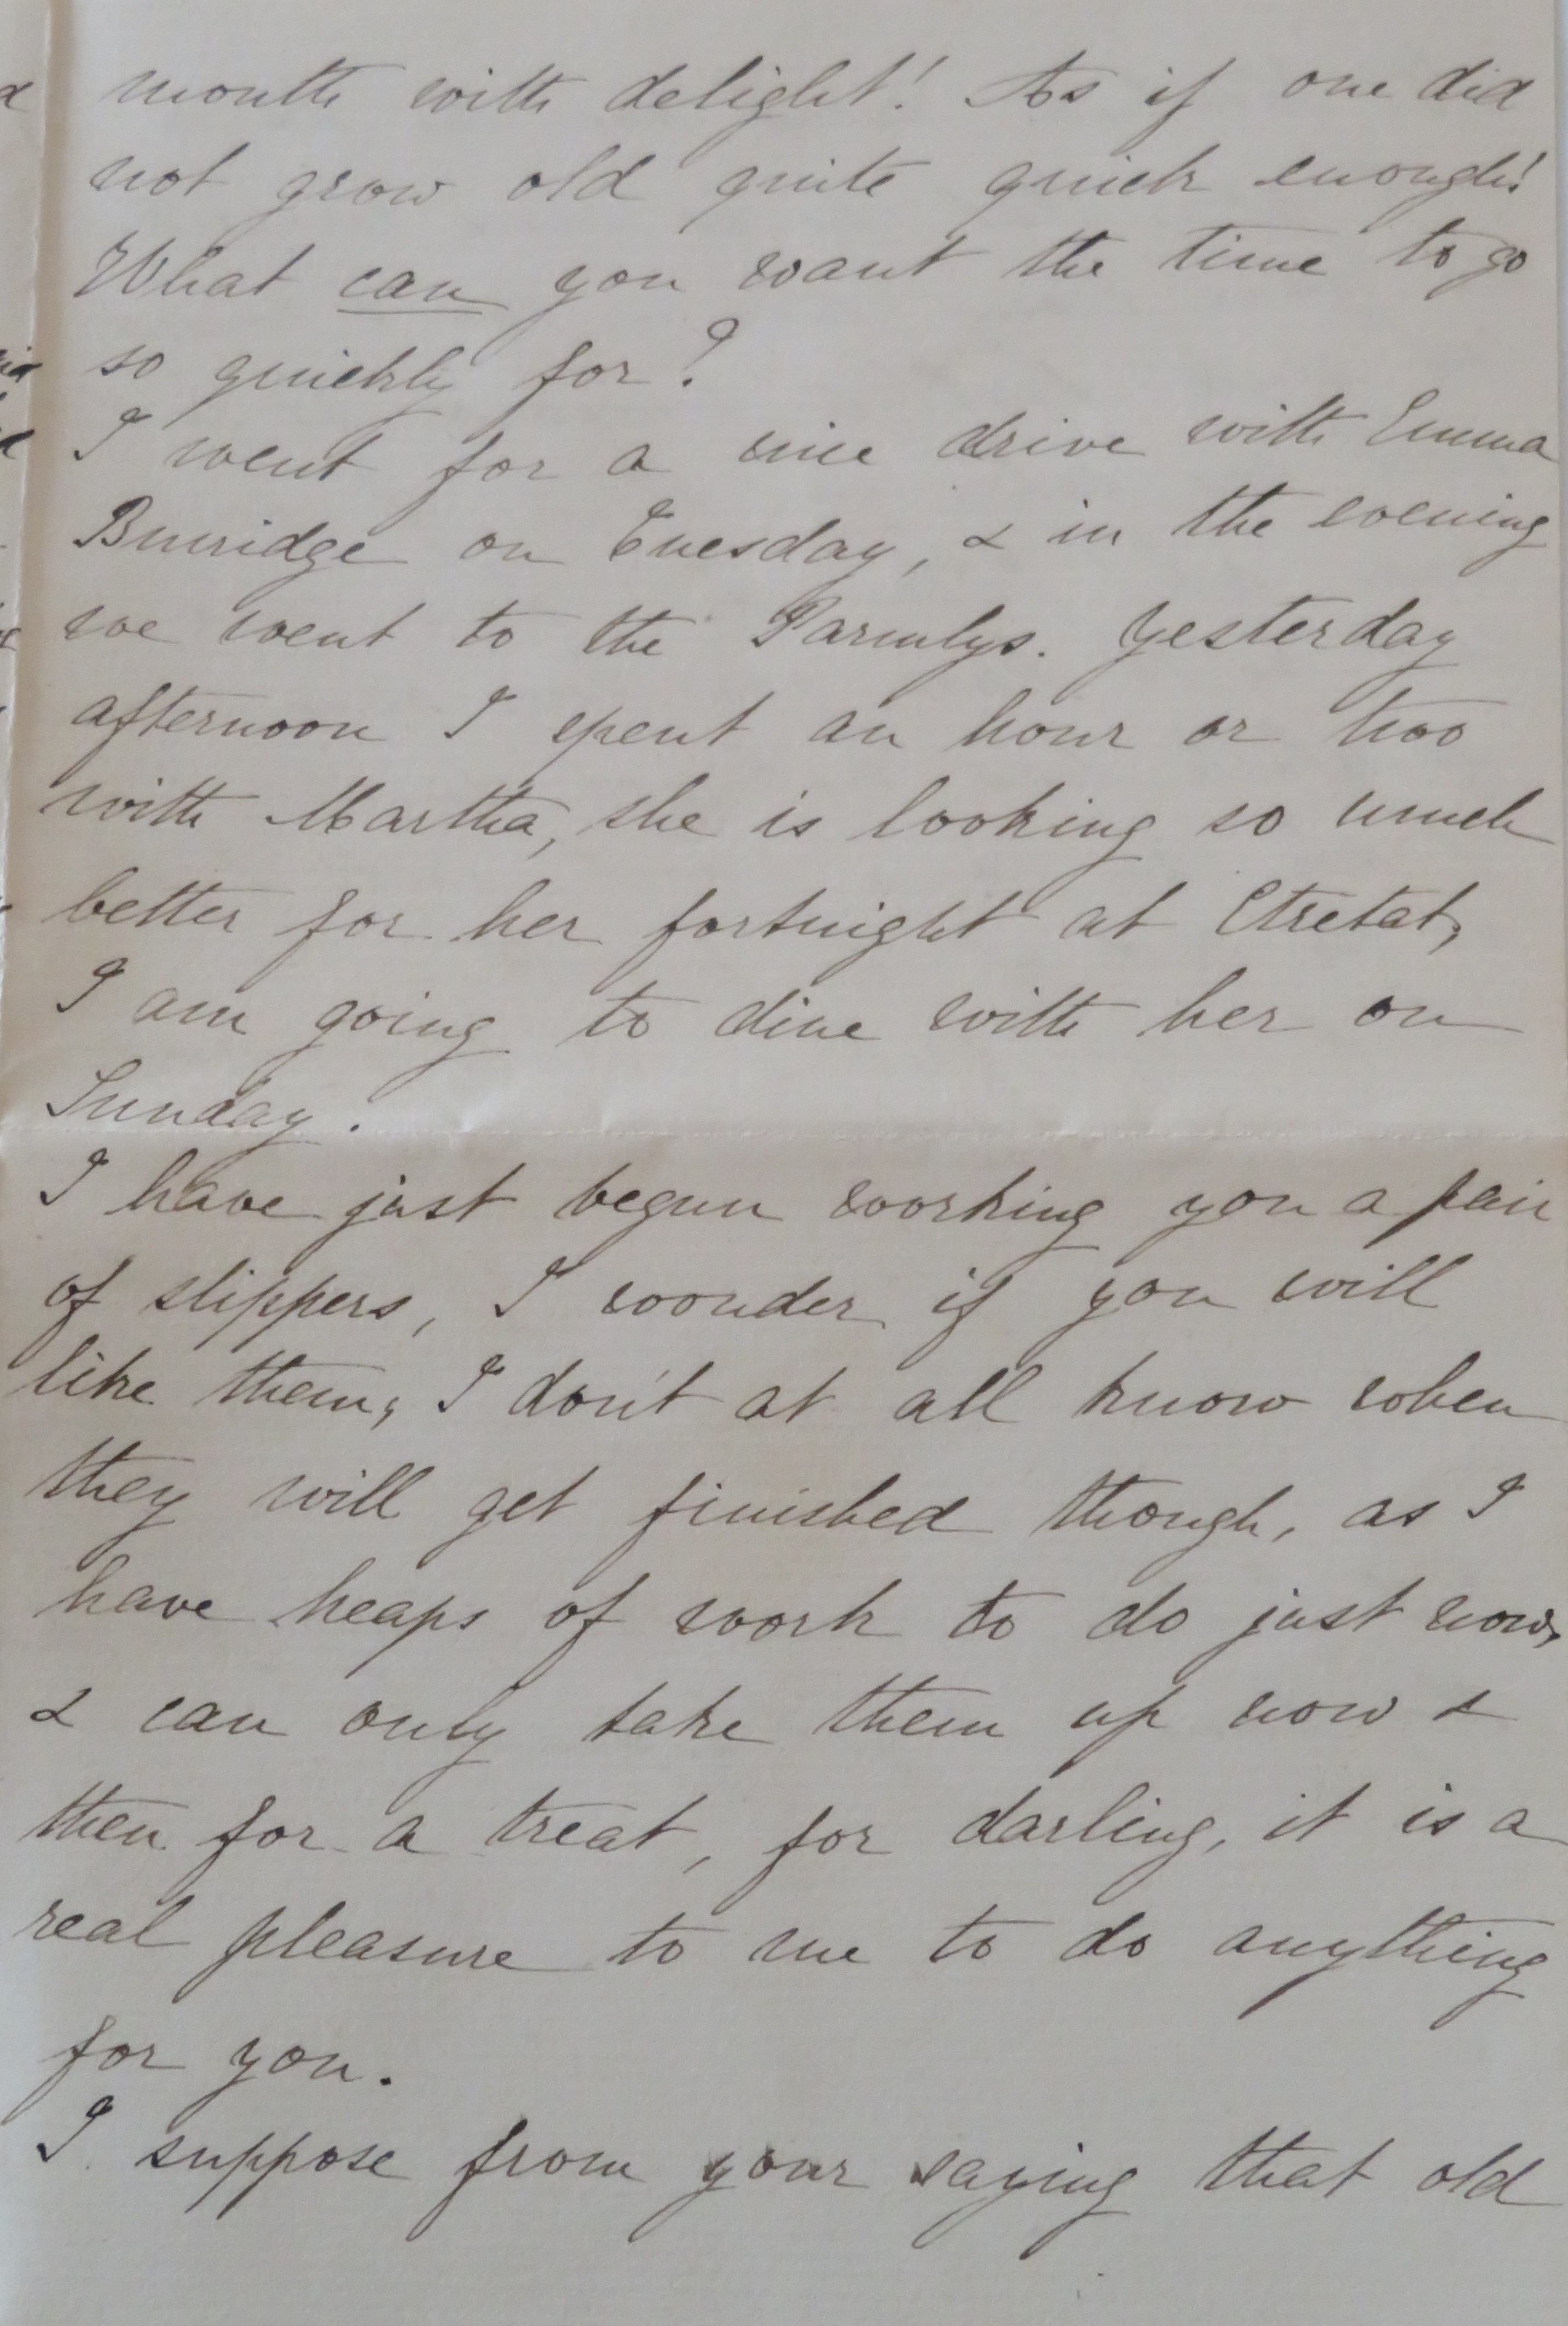 month with delight! As if one did
not grow old quite quick enough!
What can you want the time to go
so quickly for?
I went for a nice drive with Emma
Burridge on Tuesday, & in the evening
we went to the Parmlys. Yesterday
afternoon I spent an hour or two
with Martha, she is looking so much
better for her fortnight at Etretat,
I am going to dine with her on
Sunday.
I have just begun working you a pair
of slippers, I wonder if you will
like them, I don't at all know when
they will get finished though, as I
have heaps of work to do just now,
& can only take them up now &
then for a treat, for darling, it is a
real pleasure to me to do anything
for you.
I suppose from your saying that old